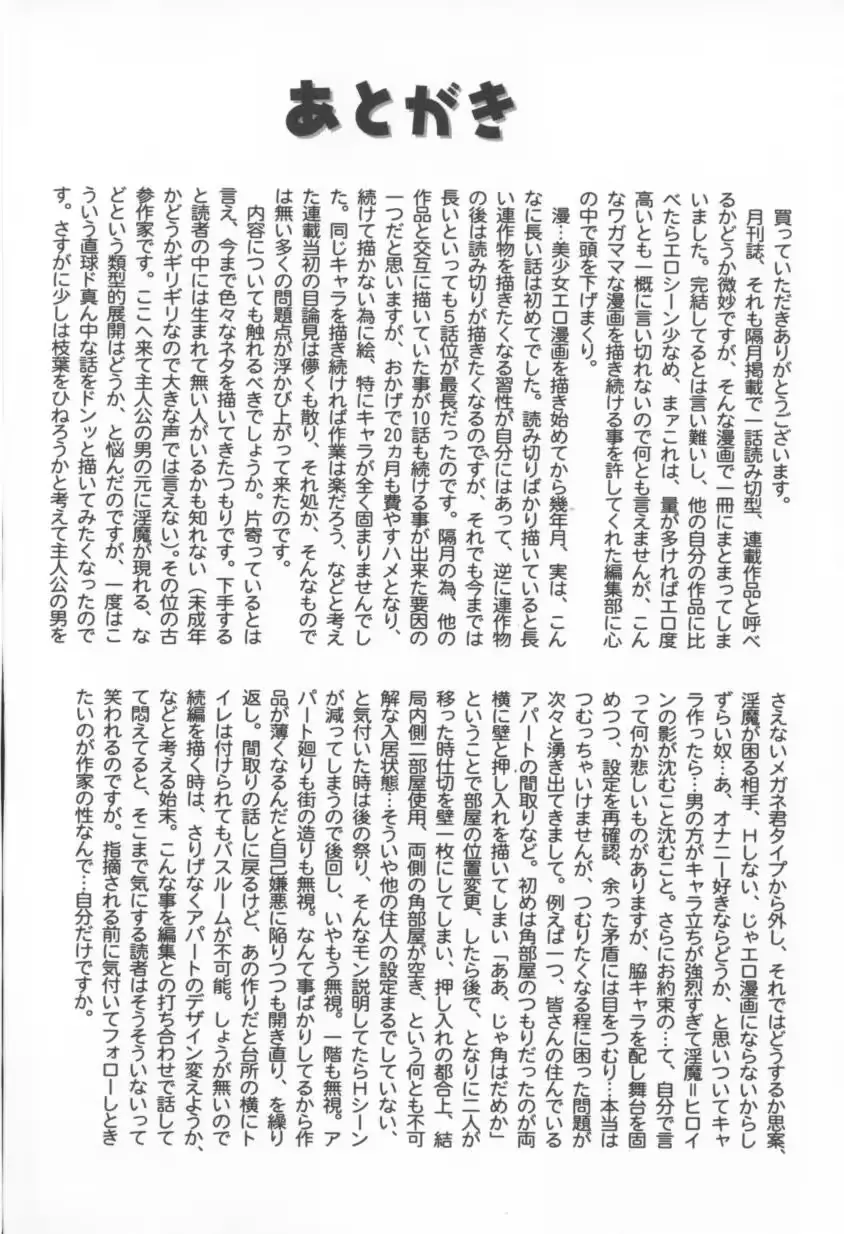 あとがき
買っていただきありがとうございます。
月刊誌、それも隔月掲載で一話読み切型、連載作品と呼べ
るかどうか微妙ですが、そんな漫画で一冊にまとまってしま
いました。完結してるとは言い難いし、他の自分の作品に比
べたらエロシーン少なめ、まァこれは、量が多ければエロ度
高いとも一概に言い切れないので何とも言えませんが、こん
なワガママな漫画を描き続ける事を許してくれた編集部に心
の中で頭を下げまくり。
漫…美少女エロ漫画を描き始めてから幾年月、実は、こん
なに長い話は初めてでした。読み切りばかり描いていると長
い連作物を描きたくなる習性が自分にはあって、逆に連作物
の後は読み切りが描きたくなるのですが、それでも今までは
長いといっても5話位が最長だったのです。隔月の為、他の
作品と交互に描いていた事が10話も続ける事が出来た要因の
一つだと思いますが、おかげで20ヵ月も費やすハメとなり、
続けて描かない為に絵、特にキャラが全く固まりませんでし
た。同じキャラを描き続ければ作業は楽だろう、などと考え
た連載当初の目論見は儚くも散り、それ処か、そんなもので
は無い多くの問題点が浮かび上がって来たのです。
内容についても触れるべきでしょうか。片寄っているとは
言え、今まで色々なネタを描いてきたつもりです。下手する
と読者の中には生まれて無い人がいるかも知れない（未成年
かどうかギリギリなので大きな声では言えない）。その位の古
参作家です。ここへ来て主人公の男の元に淫魔が現れる、な
どという類型的展開はどうか、と悩んだのですが、一度はこ
ういう直球ド真ん中な話をドンッと描いてみたくなったので
す。さすがに少しは枝葉をひねろうかと考えて主人公の男を
さえないメガネ君タイプから外し、それではどうするか思案、
淫魔が困る相手、Hしない、じゃエロ漫画にならないからし
ずらい奴…あ、オナニー好きならどうか、と思いついてキャ
ラ作ったら…男の方がキャラ立ちが強烈すぎて淫魔=ヒロイ
ンの影が沈むこと沈むこと。さらにお約束の…て、自分で言
って何か悲しいものがありますが、脇キャラを配し舞台を固
めつつ、設定を再確認、余った矛盾には目をつむり…本当は
つむっちゃいけませんが、つむりたくなる程に困った問題が
次々と湧き出てきまして。例えば一つ、皆さんの住んでいる
アパートの間取りなど。初めは角部屋のつもりだったのが両
横に壁と押し入れを描いてしまい「ああ、じゃ角はだめか」
ということで部屋の位置変更、したら後で、となりに二人が
移った時仕切を壁一枚にしてしまい、押し入れの都合上、結
局内側二部屋使用、両側の角部屋が空き、という何とも不可
解な入居状態…そういや他の住人の設定まるでしていない、
と気付いた時は後の祭り、そんなモン説明してたらHシーン
が減ってしまうので後回し、いやもう無視。一階も無視。ア
パート廻りも街の造りも無視。なんて事ばかりしてるから作
品が薄くなるんだと自己嫌悪に陥りつつも開き直り、を繰り
返し。間取りの話しに戻るけど、あの作りだと台所の横にト
イレは付けられてもバスルームが不可能。しょうが無いので
続編を描く時は、さりげなくアパートのデザイン変えようか、
などと考える始末。こんな事を編集との打ち合わせで話して
て悶えてると、そこまで気にする読者はそうそういないって
笑われるのですが。指摘される前に気付いてフォローしとき
たいのが作家の性なんで…自分だけですか。